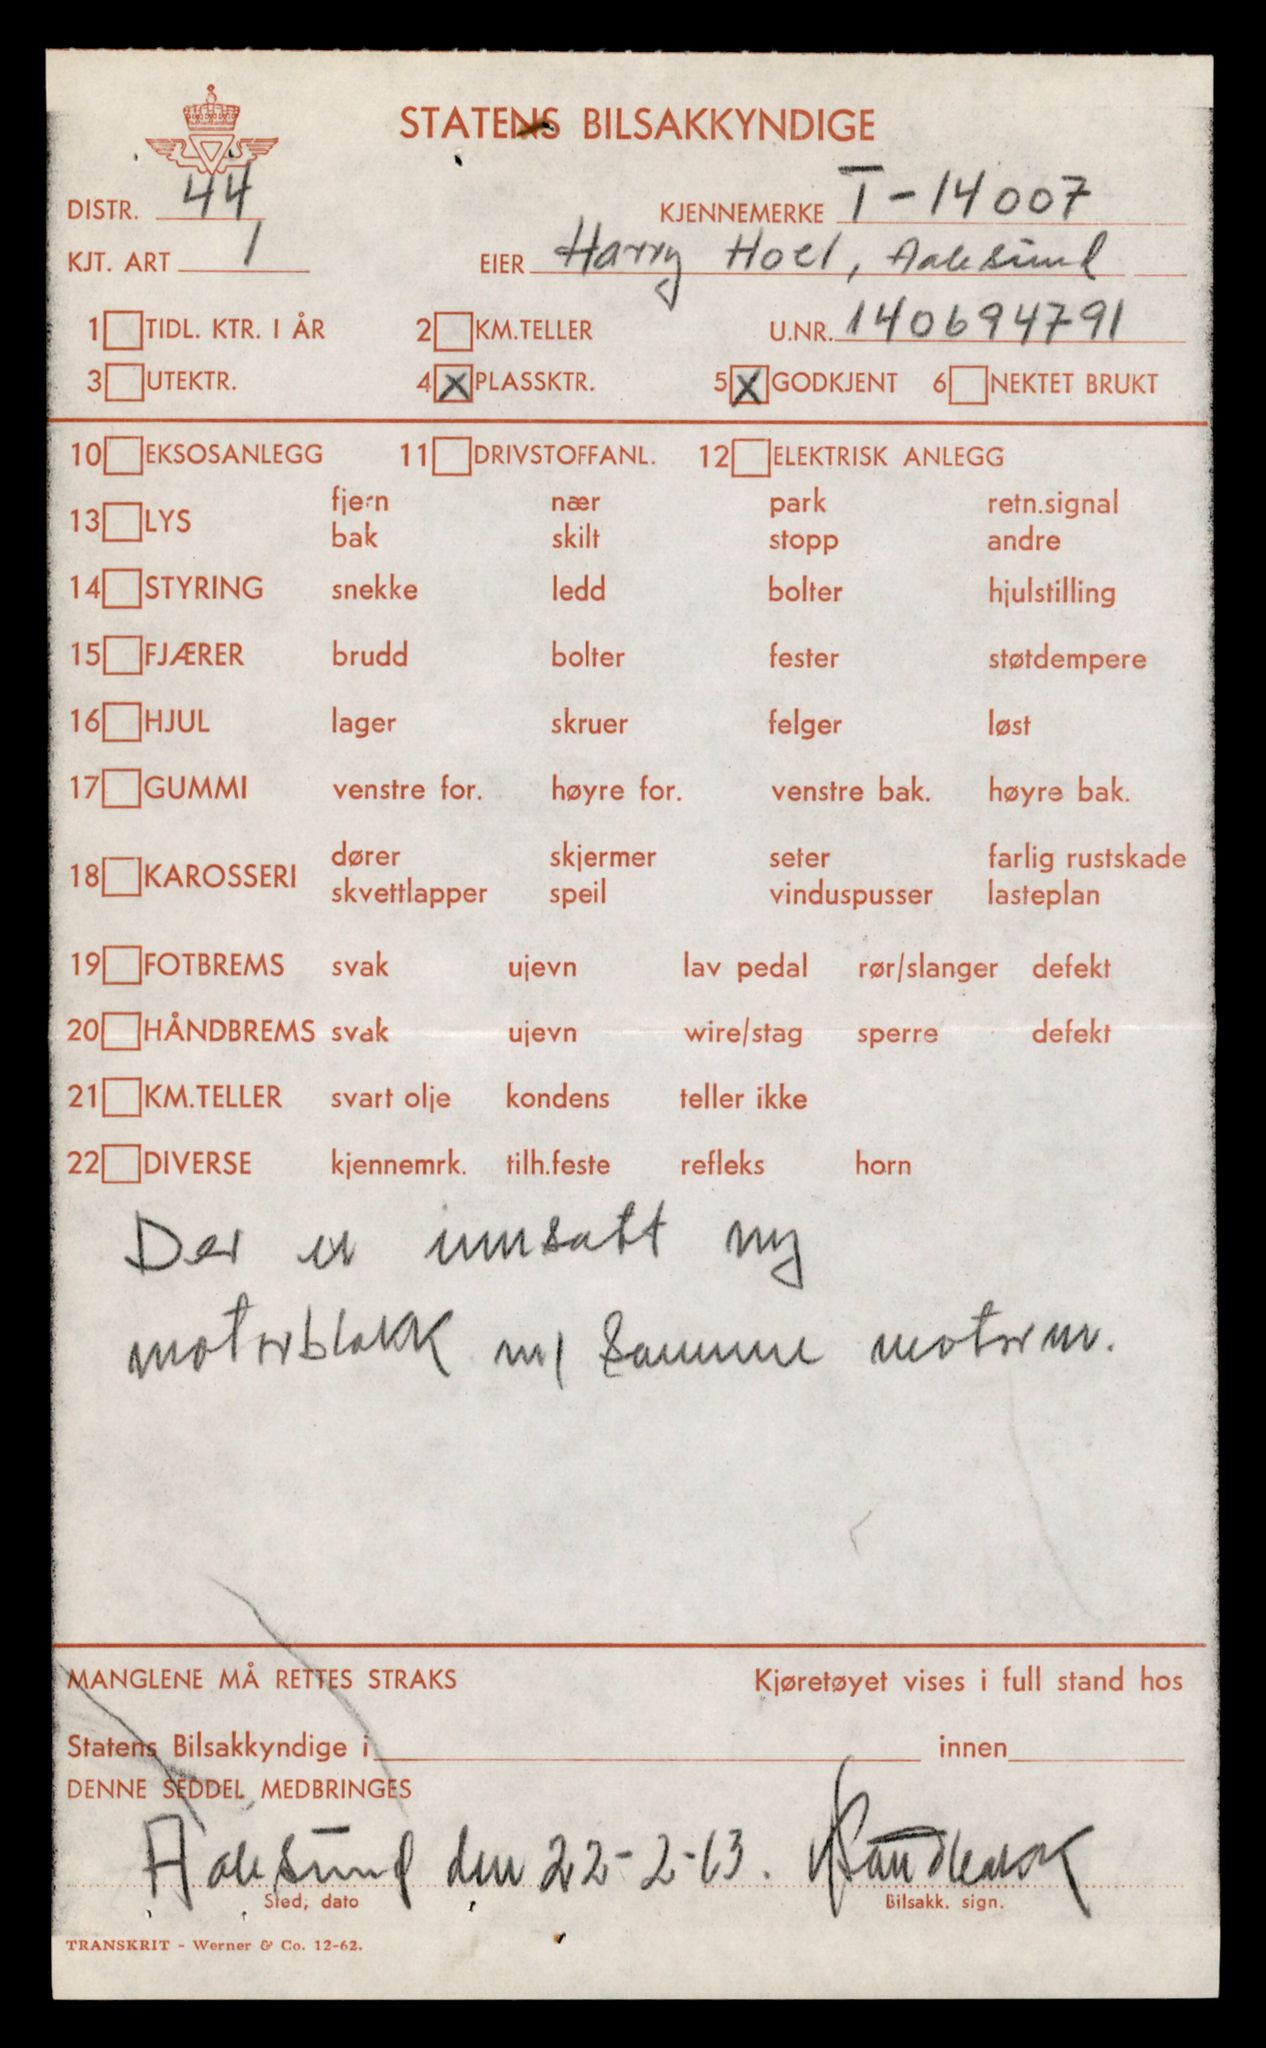 STATENS BILSAKKYNDIGE
DISTR. 44
KJENNEMERKE T-14007
KJT. ART 1
EIER Harry Hoel, Aalesund
1 TIDL. KTR. I ÅR 2 KM.TELLER U.NR. 140694791
3 UTEKTR. 4 X PLASSKTR. 5 X GODKJENT 6 NEKTET BRUKT
10 EKSOSANLEGG 11 DRIVSTOFFANL. 12 ELEKTRISK ANLEGG
13 LYS fjern nær park retn.signal
bak skilt stopp andre
14 STYRING snekke ledd bolter hjulstilling
15 FJÆRER brudd bolter fester støtdempere
16 HJUL lager skruer felger løst
17 GUMMI venstre for. høyre for. venstre bak. høyre bak.
18 KAROSSERI dører skjermer seter farlig rustskade
skvettlapper speil vinduspusser lasteplan
19 FOTBREMS svak ujevn lav pedal rør/slanger defekt
20 HÅNDBREMS svak ujevn wire/stag sperre defekt
21 KM.TELLER svart olje kondens teller ikke
22 DIVERSE kjennemrk. tilh.feste refleks horn
Der er innsatt ny
motorblokk m/ samme motornr.
MANGLENE MÅ RETTES STRAKS Kjøretøyet vises i full stand hos
Statens Bilsakkyndige i innen
DENNE SEDDEL MEDBRINGES
Aalesund den 22-2-63.
Sted, dato Bilsakk. sign.
TRANSKRIT - Werner & Co. 12-62.